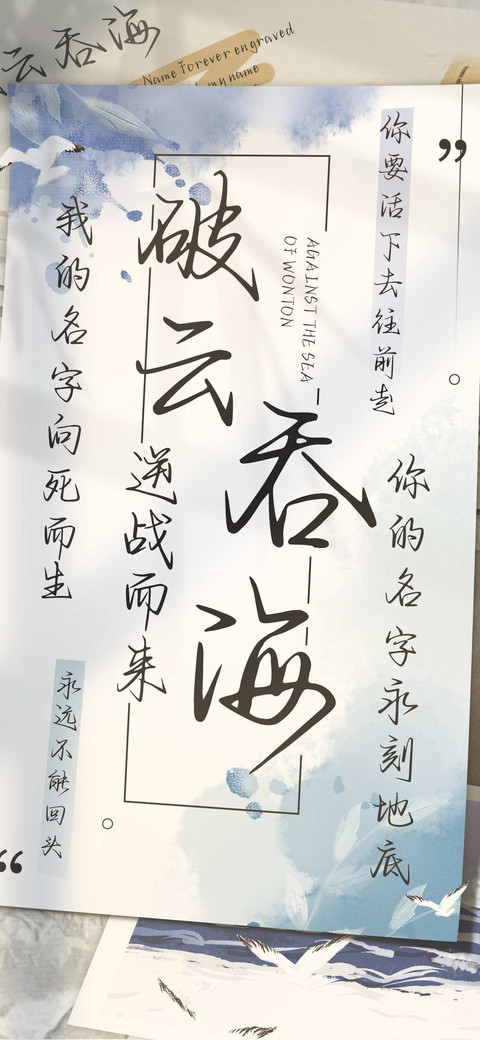 云吞海
Name Forever engraved
my name
你要活下去往前走
你的名字永刻地底
破云
吞海
AGAINST THE SEA
OF WONTON
逆战而来
我的名字向死而生
永远不能回头